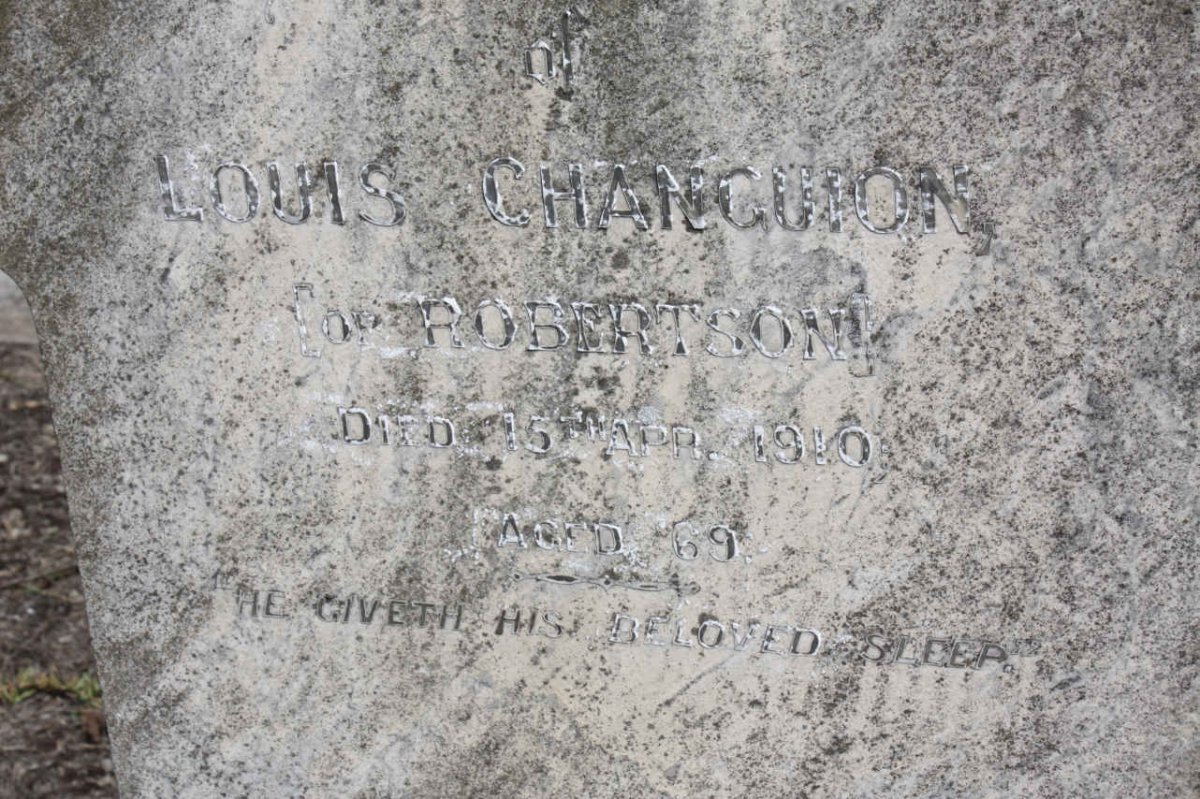 of
LOUIS CHANGUION,
[OF ROBERTSON]
DIED 15TH APR. 1910
AGED 69.
"HE GIVETH HIS BELOVED SLEEP."